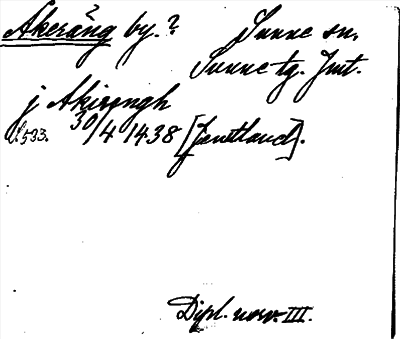 Akeräng by.? Sunne sn.
Sunne tg. Jmt.
j Akirongh
S. 533. 30/4 1438 [Jemtland].
Dipl. norv. III.